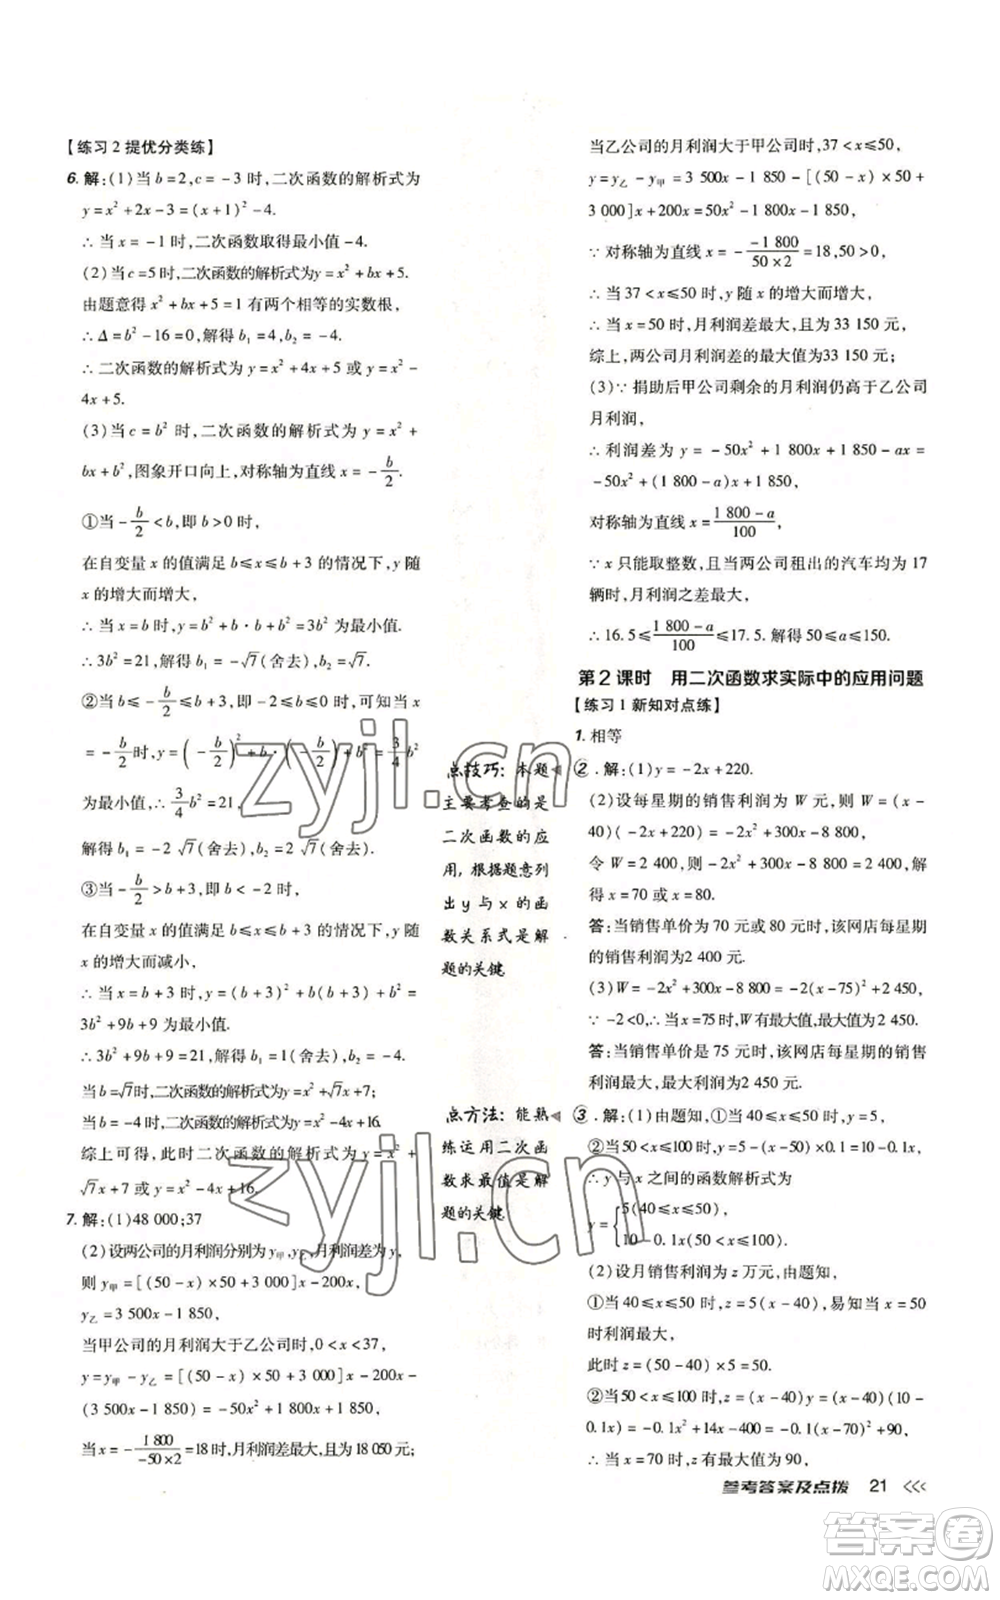 【练习2提优分类练】
6. 解:(1)当 b=2,c=-3 时,二次函数的解析式为
y=x²+2x-3=(x+1)²-4.
∴ 当 x=-1 时,二次函数取得最小值-4.
(2)当 c=5 时,二次函数的解析式为y=x²+bx+5.
由题意得 x²+bx+5=1 有两个相等的实数根,
∴ Δ=b²-16=0,解得 b₁=4,b₂=-4.
∴ 二次函数的解析式为 y=x²+4x+5 或 y=x²-
4x+5.
(3)当 c=b² 时,二次函数的解析式为 y=x²+
bx+b²,图象开口向上,对称轴为直线 x=-b/2.
①当-b/2<b,即 b>0 时,
在自变量 x 的值满足 b≤x≤b+3 的情况下,y 随
x 的增大而增大,
∴ 当 x=b 时,y=b²+b·b+b²=3b² 为最小值.
∴ 3b²=21,解得 b₁=-√7(舍去),b₂=√7.
x
=-b/2时,y=(-b/2)²+b·(-b/2)+b²=3/4b²
为最小值,∴ 3/4b²=21,
解得 b₁=-2√7(舍去),b₂=2√7(舍去).
③当-b/2>b+3,即 b<-2 时,
在自变量 x 的值满足 b≤x≤b+3 的情况下,y 随
x 的增大而减小,
∴ 当 x=b+3 时,y=(b+3)²+b(b+3)+b²=
3b²+9b+9 为最小值.
∴ 3b²+9b+9=21,解得 b₁=1(舍去),b₂=-4.
当b=√7时,二次函数的解析式为y=x²+√7x+7;
当 b=-4 时,二次函数的解析式为y=x²-4x+16.
综上可得,此时二次函数的解析式为 y=x²+
√7x+7 或 y=x²-4x+16.
7. 解:(1)48 000;37
(2)设两公司的月利润分别为 y甲,y乙,月利润差为y,
则 y甲=[(50-x)×50+3 000]x-200x,
y乙=3 500x-1 850,
当甲公司的月利润大于乙公司时,0<x<37,
y=y甲-y乙=[(50-x)×50+3 000]x-200x-
(3 500x-1 850)=-50x²+1 800x+1 850,
当x=-1 800/(-50×2)=18时,月利润差最大,为 18 050元;
当乙公司的月利润大于甲公司时,37<x≤50,
y=y乙-y甲=3 500x-1 850-[(50-x)×50+
3 000]x+200x=50x²-1 800x-1 850,
∵ 对称轴为直线 x=-(-1 800)/(50×2)=18,50>0,
∴ 当 37<x≤50 时,y 随 x 的增大而增大,
∴ 当 x=50 时,月利润差最大,且为 33 150 元,
综上,两公司月利润差的最大值为33 150 元;
(3)∵ 捐助后甲公司剩余的月利润仍高于乙公司
月利润,
∴ 利润差为 y=-50x²+1 800x+1 850-ax=
-50x²+(1 800-a)x+1 850,
对称轴为直线 x=(1 800-a)/100,
∵ x 只能取整数,且当两公司租出的汽车均为 17
辆时,月利润之差最大,
∴ 16.5≤(1 800-a)/100≤17.5. 解得 50≤a≤150.
第2课时 用二次函数求实际中的应用问题
【练习1新知对点练】
1. 相等
②. 解:(1)y=-2x+220.
(2)设每星期的销售利润为 W 元,则 W=(x-
40)(-2x+220)=-2x²+300x-8 800,
令 W=2 400,则-2x²+300x-8 800=2 400,解
得 x=70 或 x=80.
答:当销售单价为 70 元或 80 元时,该网店每星期
的销售利润为2 400 元.
(3)W=-2x²+300x-8 800=-2(x-75)²+2 450,
∵ -2<0,∴ 当 x=75时,W有最大值,最大值为2 450.
答:当销售单价是 75 元时,该网店每星期的销售
利润最大,最大为2 450 元.
③. 解:(1)由题知,①当 40≤x≤50 时,y=5,
②当50≤x≤100 时,y=5-(x-50)×0.1=10-0.1x,
∴ y 与 x 之间的函数解析式为
y={5(40≤x≤50),
10-0.1x(50<x≤100).
(2)设月销售利润为 z 万元,由题知,
①当 40≤x≤50 时,z=5(x-40),易知当 x=50
时利润最大,
此时 z=(50-40)×5=50.
②当50≤x≤100 时,z=(x-40)y=(x-40)(10-
0.1x)=-0.1x²+14x-400=-0.1(x-70)²+90,
∴ 当 x=70 时,z 有最大值为 90,
点技巧:本题
主要考查的是
二次函数的应
用,根据题意列
出 y 与 x 的函
数关系式是解
题的关键.
点方法:能熟
练运用二次函
数求最值是解
题的关键.
zyjl.cn
zyjl.cn
参考答案及点拨 21
答案圈
MXQE.COM